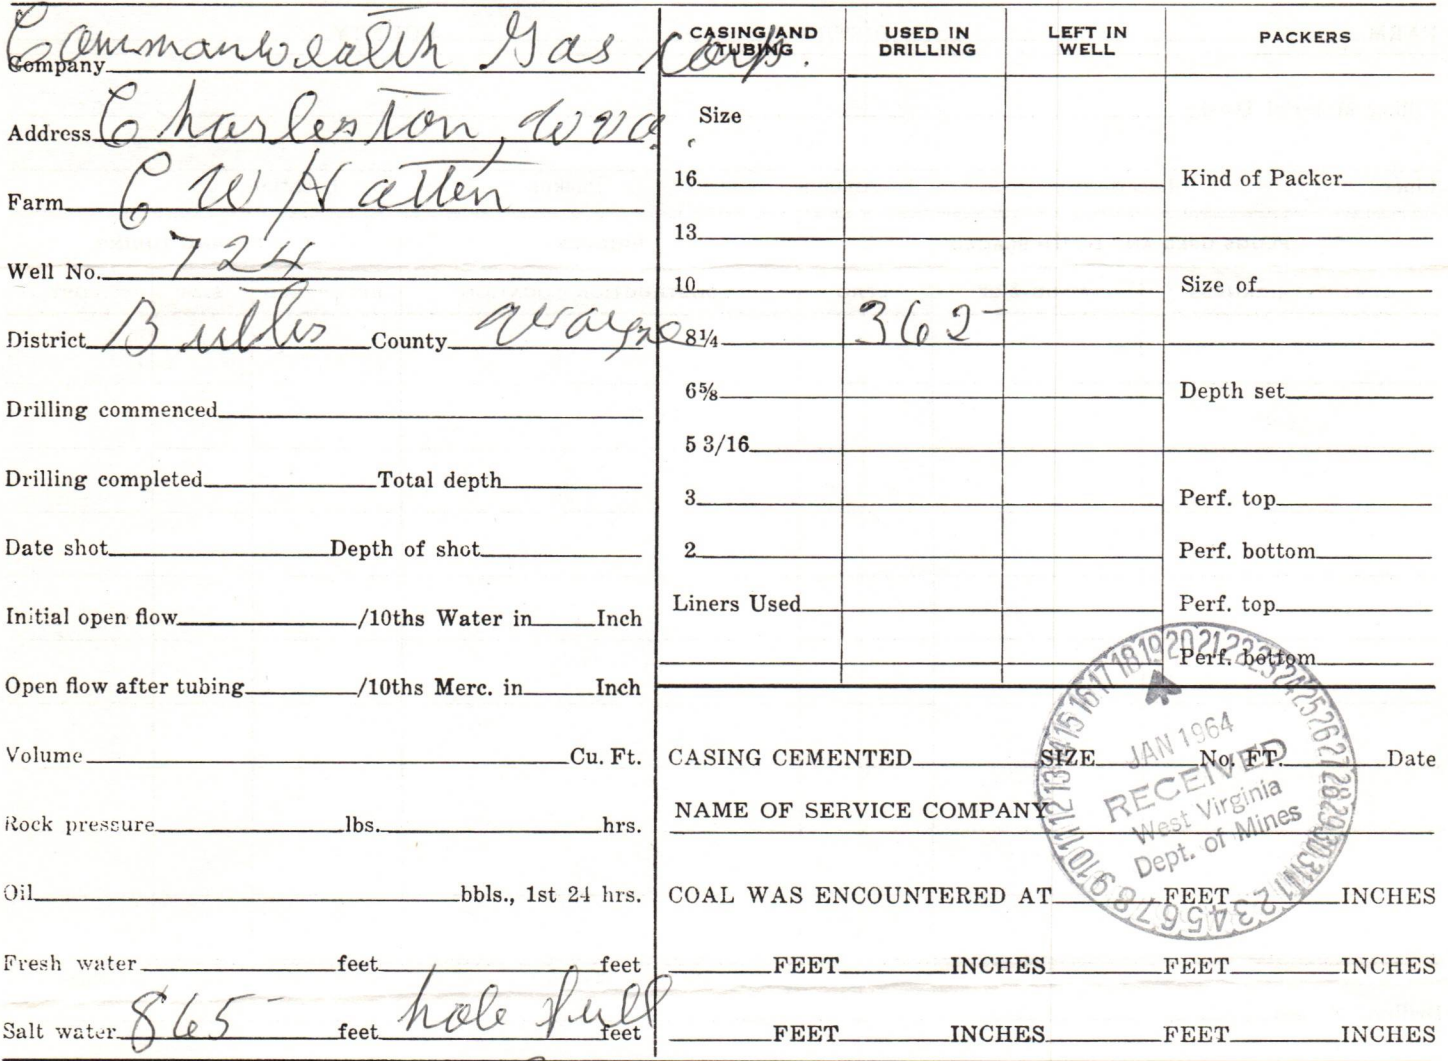 Company Commonwealth Gas Corp.
Address Charleston, W Va.
Farm C W Hatten
Well No. 724
District Butler County Wayne
Drilling commenced
Drilling completed Total depth
Date shot Depth of shot
Initial open flow /10ths Water in Inch
Open flow after tubing /10ths Merc. in Inch
Volume Cu. Ft.
Rock pressure lbs. hrs.
Oil bbls., 1st 24 hrs.
Fresh water feet feet
Salt water 865 feet hole full feet
CASING AND TUBING USED IN DRILLING LEFT IN WELL PACKERS
Size
16 Kind of Packer
13
10 Size of
8¼ 362
6⅝ Depth set
5 3/16
3 Perf. top
2 Perf. bottom
Liners Used Perf. top
Perf. bottom
CASING CEMENTED SIZE No. FT. Date
NAME OF SERVICE COMPANY
COAL WAS ENCOUNTERED AT FEET INCHES
FEET INCHES FEET INCHES
FEET INCHES FEET INCHES
1 2 3 4 5 6 7 8 9 10 11 12 13 14 15 16 17 18 19 20 21 22 23 24 25 26 27 28 29 30 31
JAN 1964
RECEIVED
West Virginia
Dept. of Mines